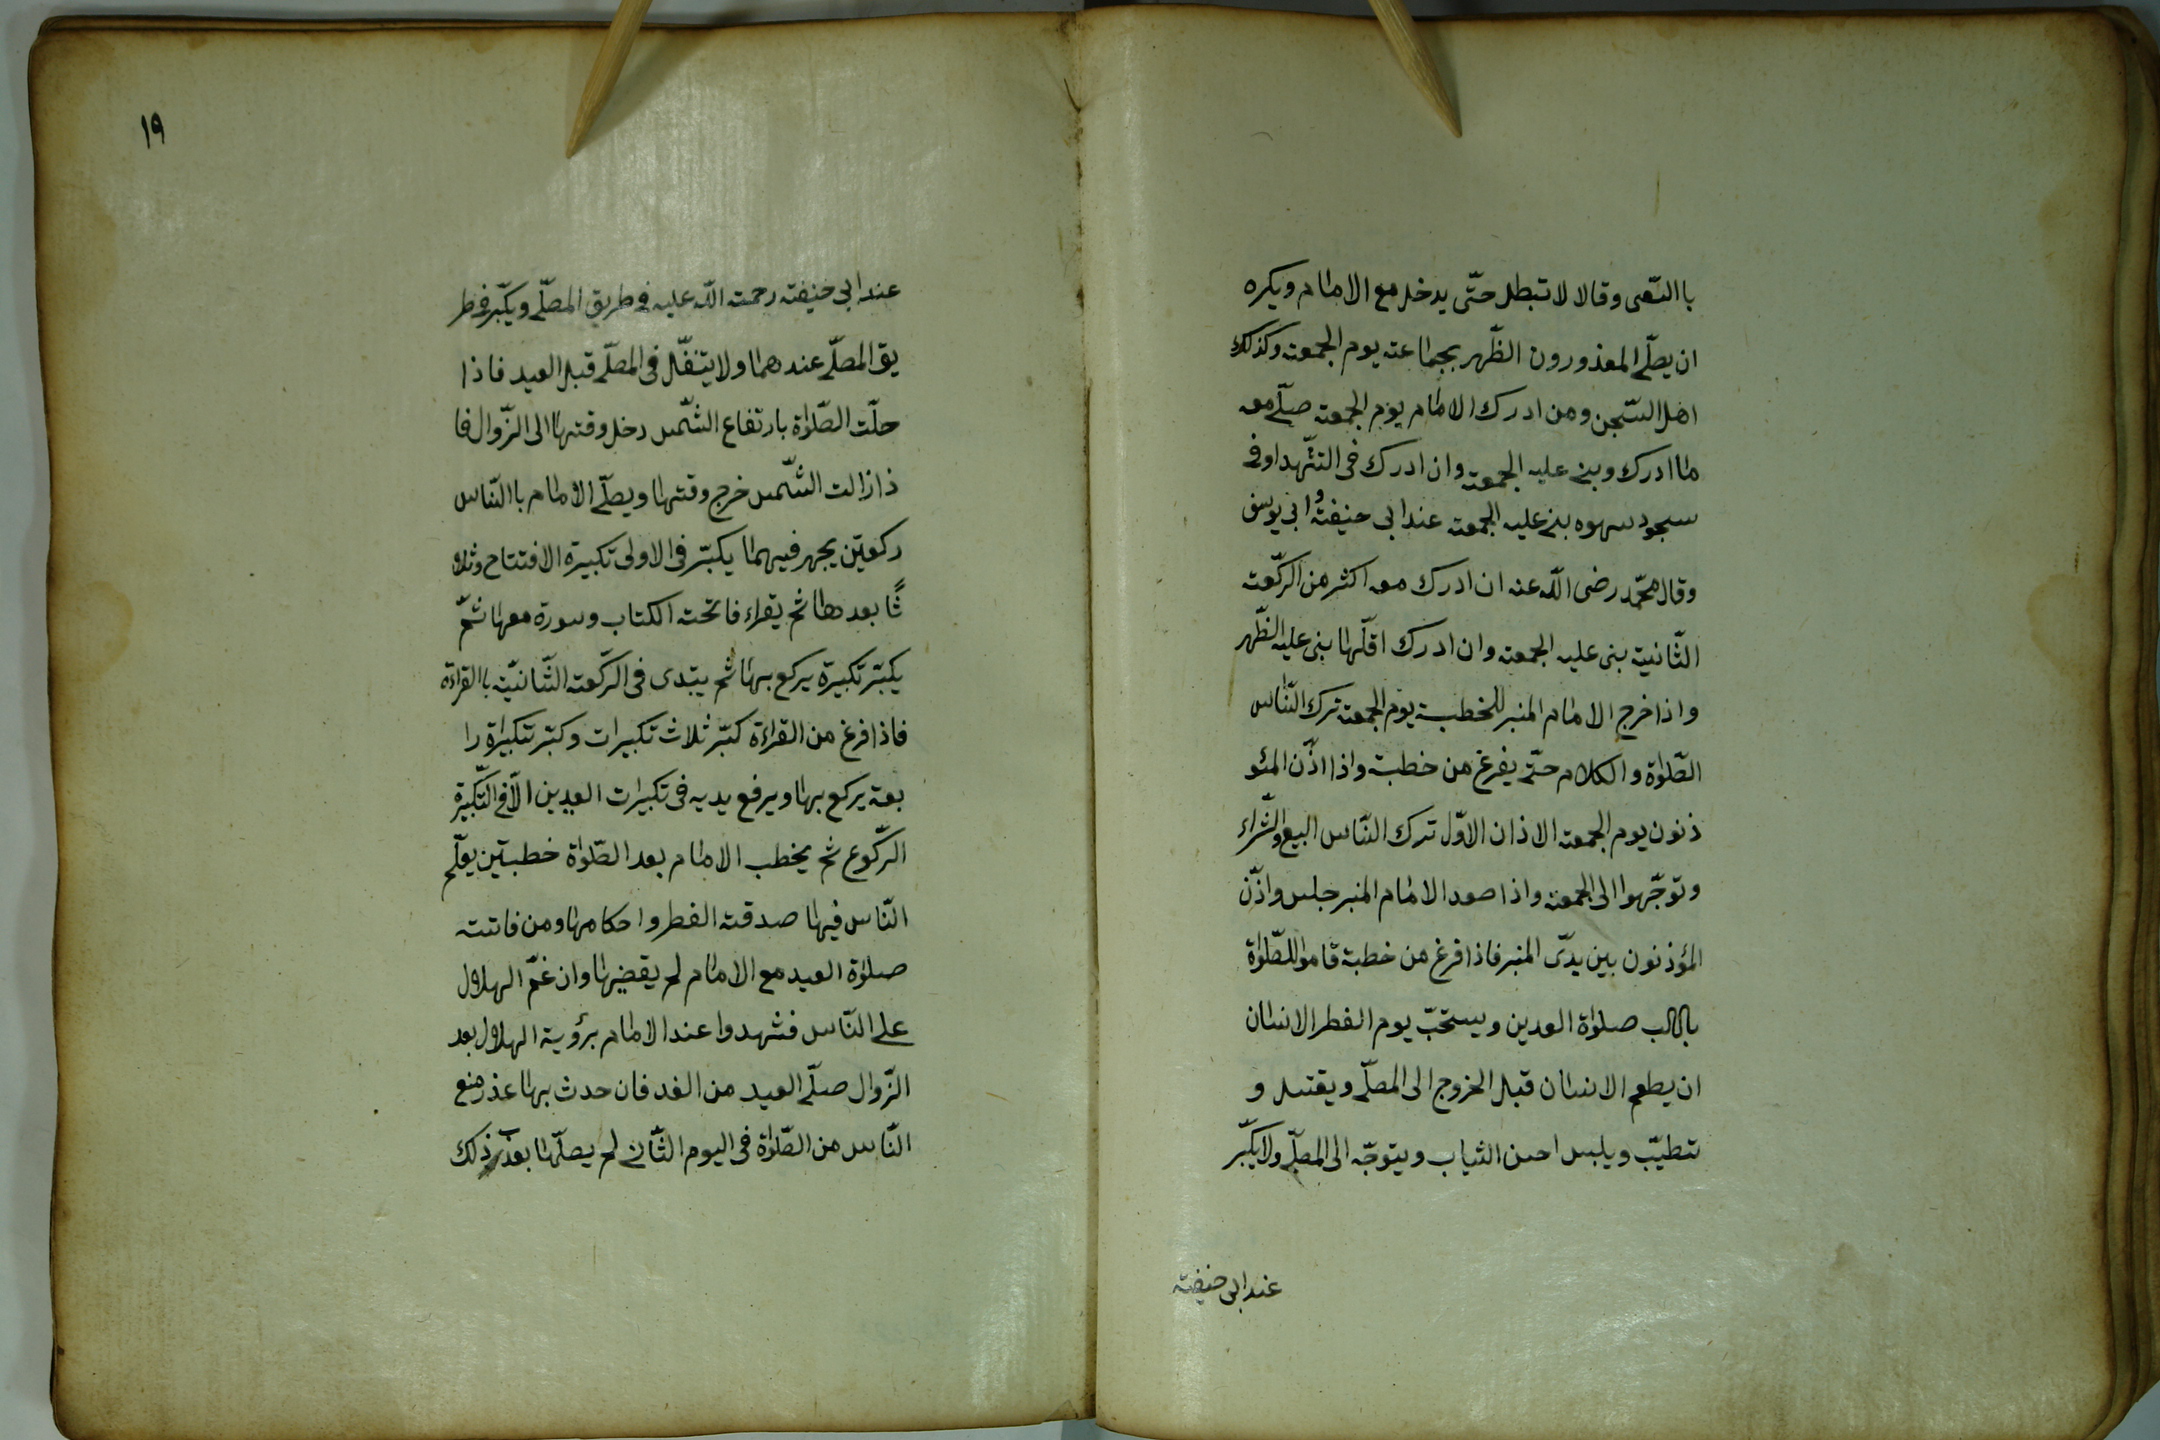 باالسّعى وقالا لا تبطل حتّى يدخل مع الامام ويكره
ان يصلّى المعذورون الظّهر بجماعته يوم الجمعته وكذلك
اهل السّجن ومن ادرك الامام يوم الجمعته صلّى معه
ما ادرك وبنى عليه الجمعته وان ادرك فى التشّهد اوفى
سجود سهوه بنى عليه الجمعته عند ابى حنيفتُه وابى يوسف
وقال محمّد رضى اللّه عنه ان ادرك معه اكثر من الركّعته
الثّانية بنى عليه الجمعته وان ادرك اقلّها بنى عليه الظّهر
واذا خرج الامام المنبر للخطبته يوم الجمعته ترك النّاس
الصّلوٰة والكلام حتّى يفرغ من خطبته واذا اذّن المئو
ذنون يوم الجمعته الاذان الاوّل ترك النّاس البيع والشّراء
وتوجّهوا الى الجمعته واذا صعد الامام المنبر جلس واذّن
المؤذنون بين يدّى المنبر فاذا فرغ من خطبته قاموا للصّلوٰة
باب صلوٰة العدين ويستحبّ يوم الفطر الانسان
ان يطعم الانسان قبل الخروج الى المصلّى ويغتسل و
تتطيّب ويلبس احسن الثياب ويتوجّه الى المصلّى ولا يكبّر
عند ابى حنيفته
١٩
عند ابى حنيفته رحمته اللّه عليه فى طريق المصلّى ويكبّر فى طر
يق المصلّى عندهما ولا يتنفّل فى المصلّى قبل العيد فاذا
حلّت الصّلوٰة بارتفاع الشّمس دخل وقتها الى الزّوال فا
ذا زالت الشّمس خرج وقتها ويصلّى الامام باالنّاس
ركعتين يجهر فيهما يكبّر فى الاولى تكبيرة الافتتاح وثلا
ثًا بعدها ثم يقراء فاتحته الكتاب وسورة معها ثمّ
يكبّر تكبيرة يركع بها ثم يبتدى فى الركّعته الثّانيّة باالقراءة
فاذا فرغ من القراءة كبّر ثلاث تكبيرات وكبّر تكبيرة را
بعة يركع بها ويرفع يديه فى تكبيرات العيدين الّا فى التّكبيرة
الركّوع ثم يخطب الامام بعد الصّلوٰة خطبتين يعلّم
النّاس فيها صدقته الفطر واحكامها ومن فاتته
صلوٰة العيد مع الامام لم يقضيها وان غمّ الهلال
على النّاس فشهدوا عند الامام برؤية الهلال بعد
الزّوال صلّى العيد من الغد فان حدث بها عذر منع
النّاس من الصّلوٰة فى اليوم الثّانى لم يصلّها بعد ذلك